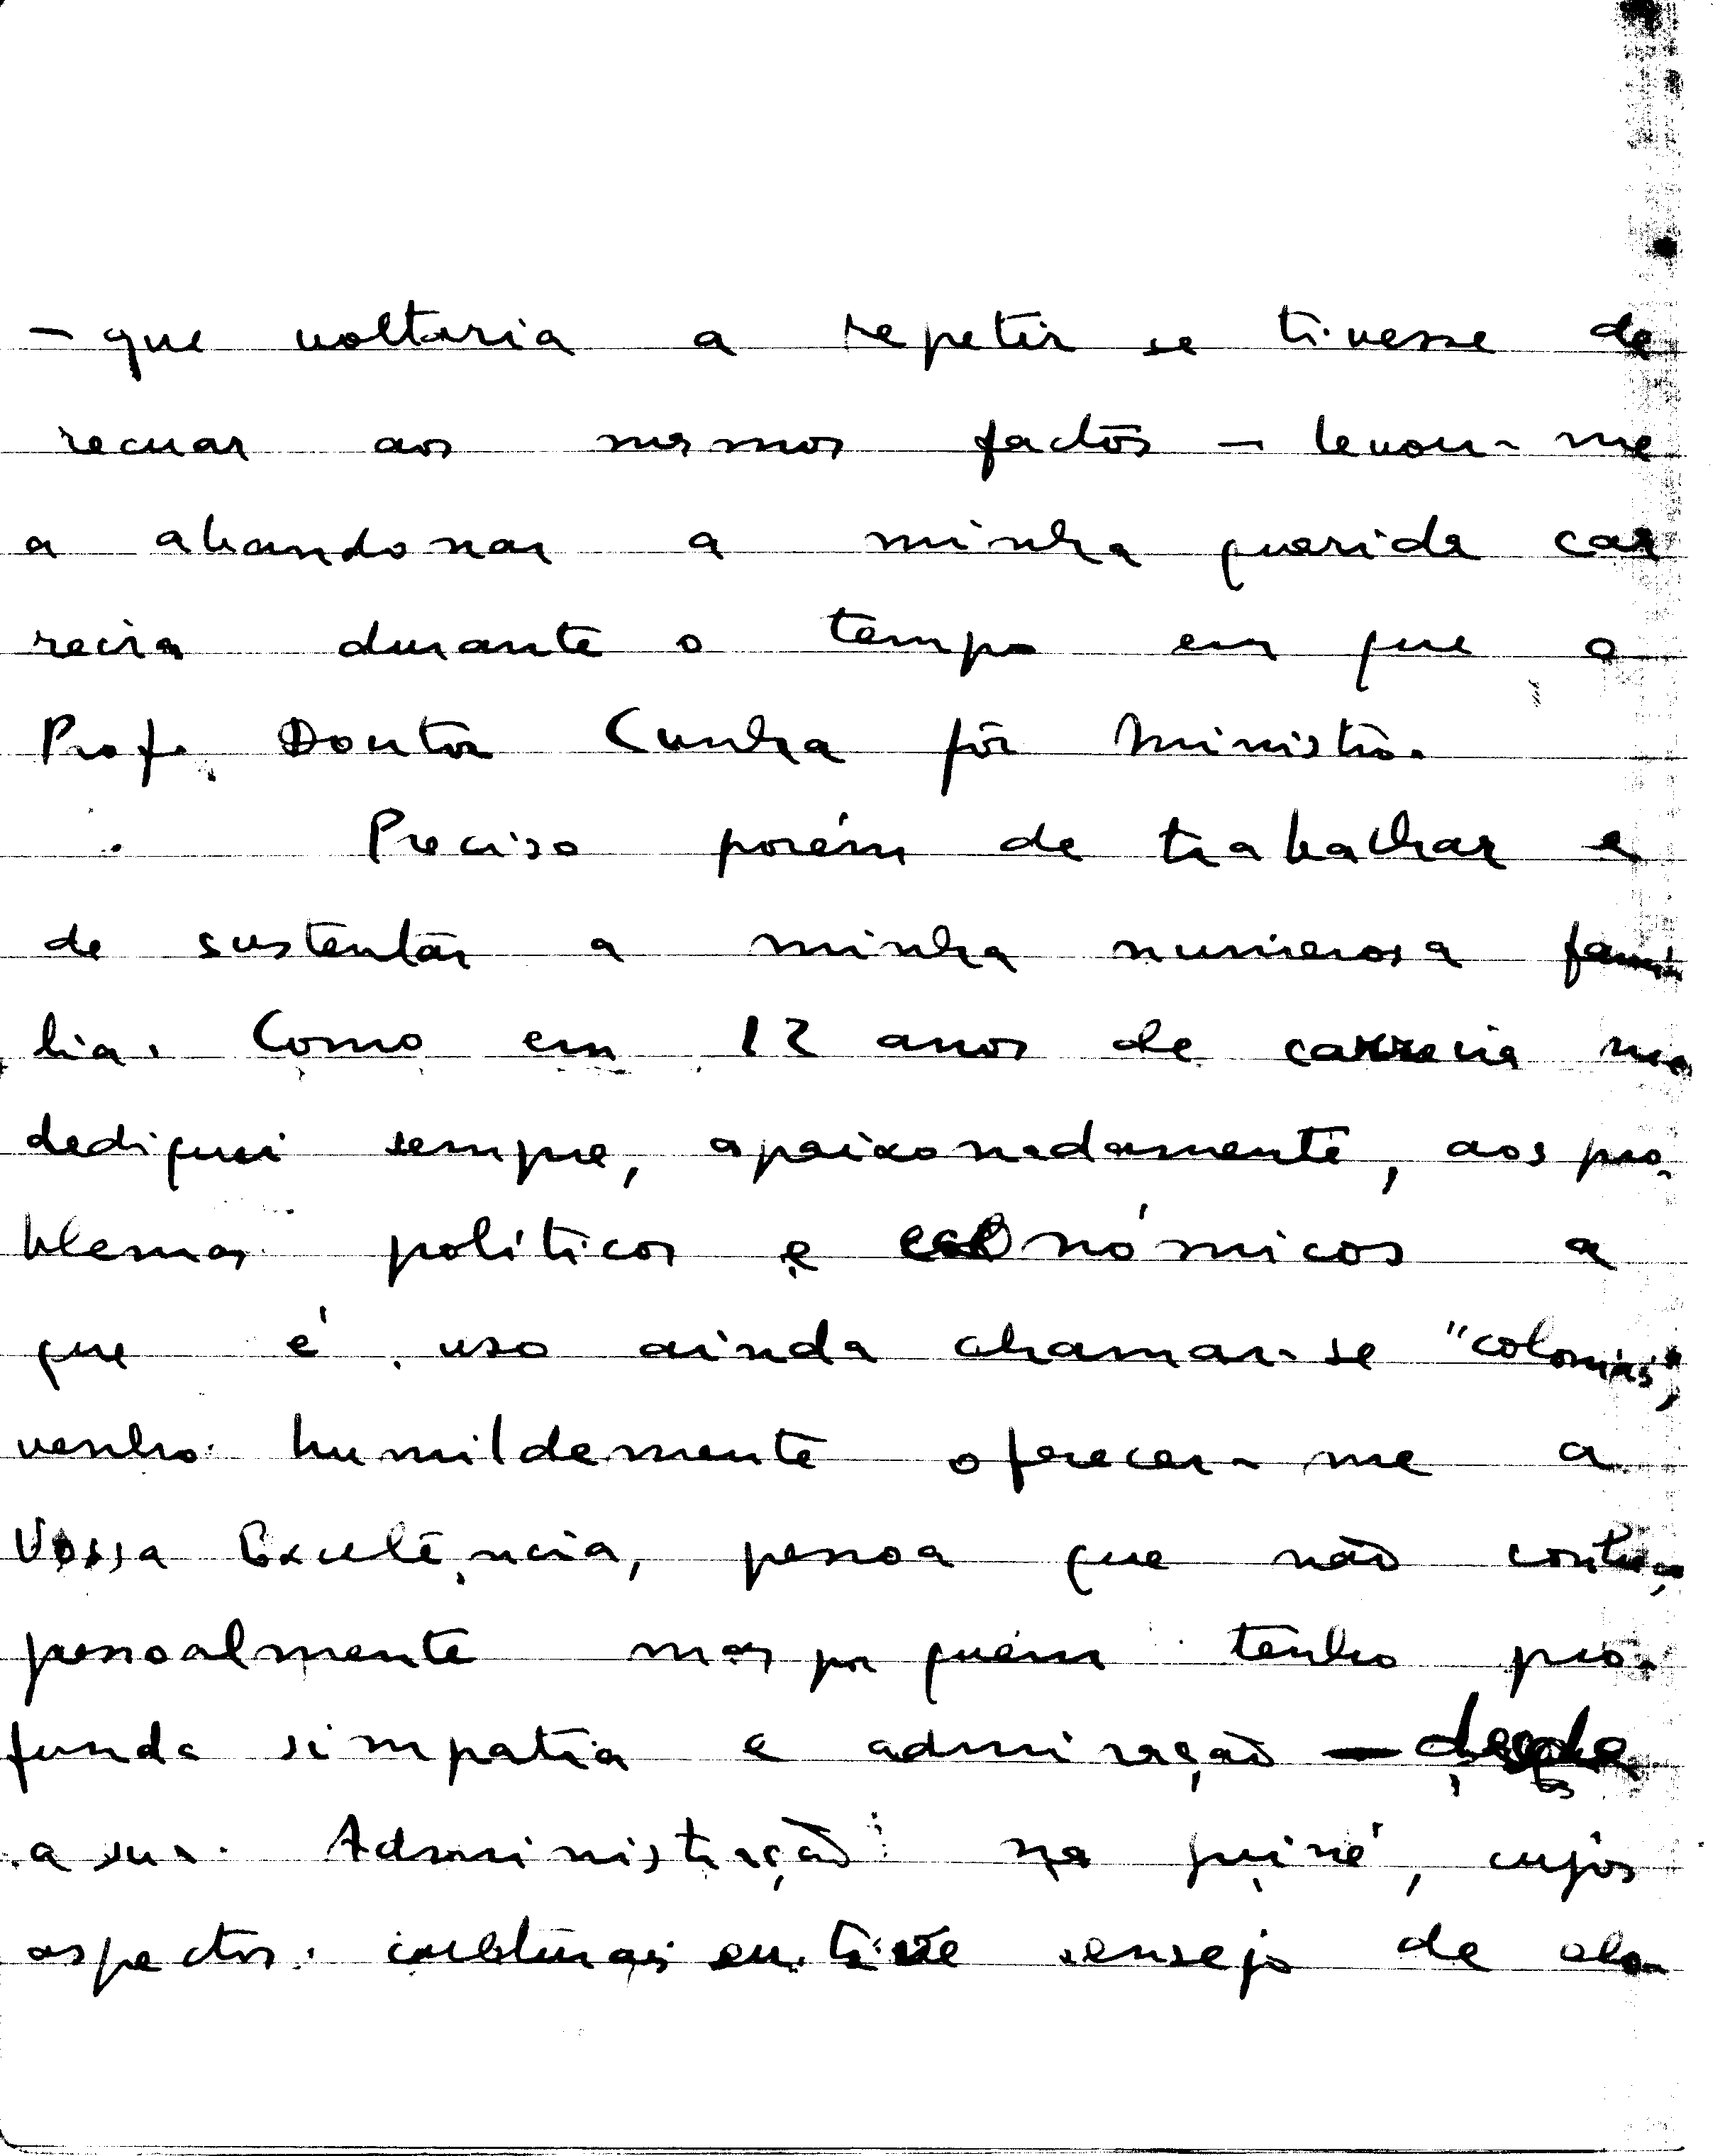 - que voltaria a repetir se tivesse de
recuar aos mesmos factos - levou-me
a abandonar a minha querida car
reira durante o tempo em que o
Prof. Doutor Cunha fôr Ministro.
Preciso porém de trabalhar e
de sustentar a minha numerosa famí
lia. Como em 12 anos de carreira me
dediquei sempre, apaixonadamente, aos pro-
blemas políticos e económicos a
que é uso ainda chamar-se "colonias",
venho humildemente oferecer-me a
Vossa Excelência, pessoa que não
pessoalmente mas por quem tenho pro-
funda simpatia e admiração - desde
a sua Administração na Guiné, cujos
aspectos culturais eu tive ensejo de